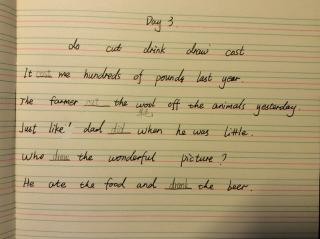 Day 3
do cut drink draw cost
It cost me hundreds of pounds last year.
The farmer cut the wool off the animals yesterday.
Just like dad did when he was little.
Who drew the wonderful picture?
He ate the food and drank the beer.